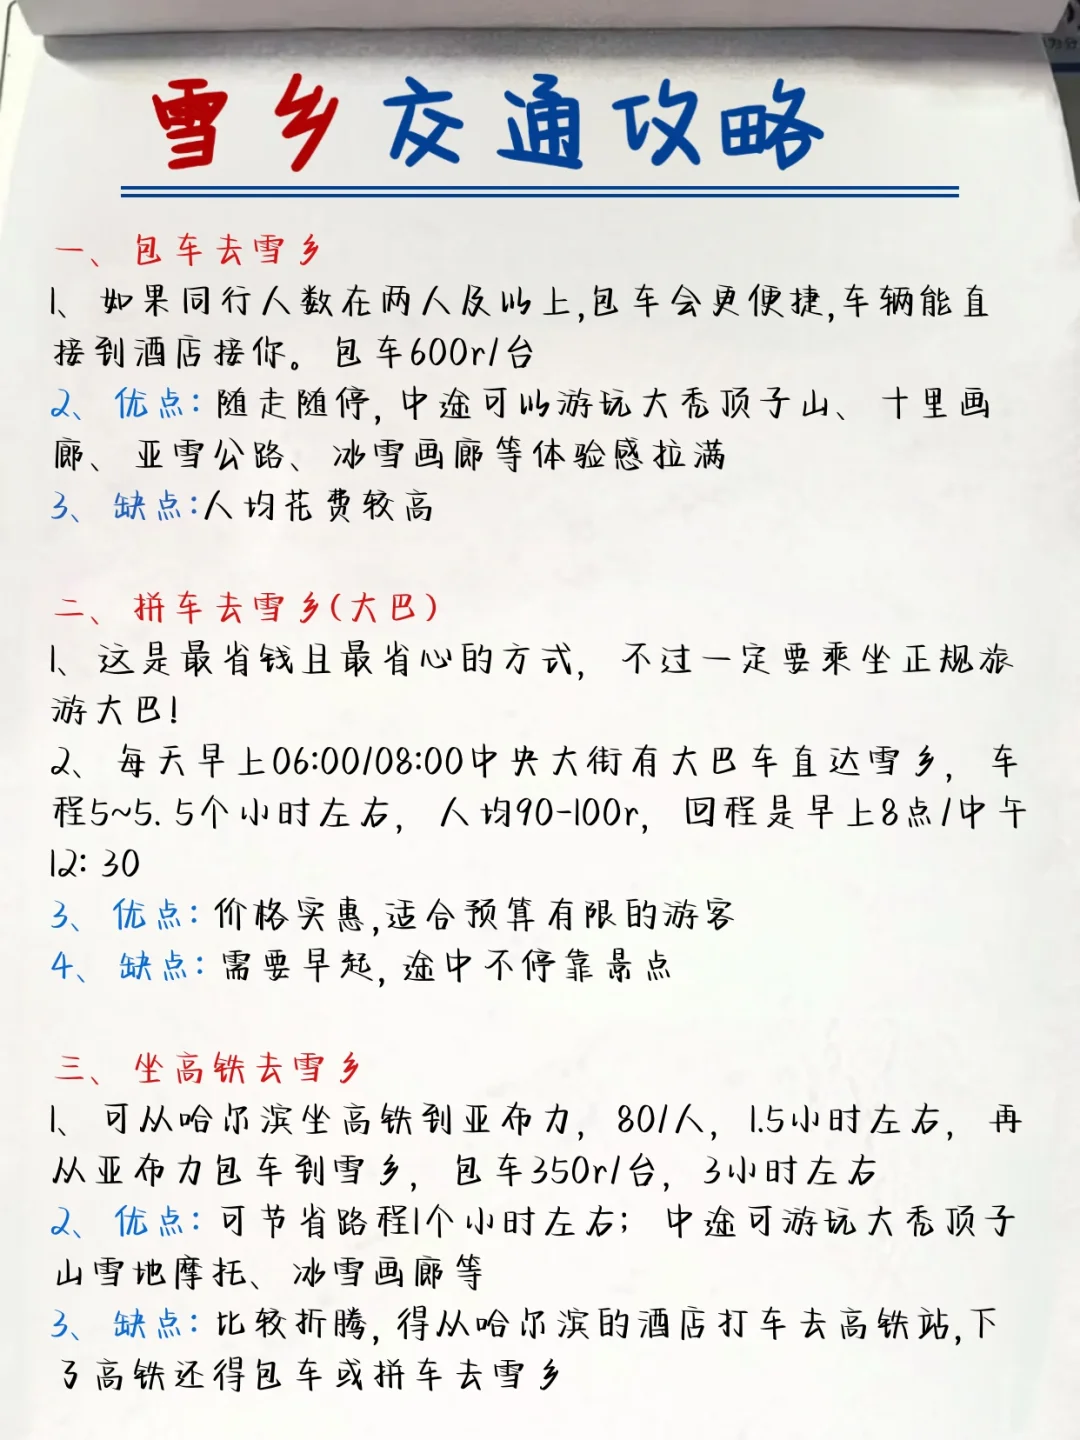 雪乡交通攻略
一、包车去雪乡
1、如果同行人数在两人及以上,包车会更便捷,车辆能直
接到酒店接你。包车600r/台
2、优点:随走随停,中途可以游玩大秃顶子山、十里画
廊、亚雪公路、冰雪画廊等体验感拉满
3、缺点:人均花费较高
二、拼车去雪乡(大巴)
1、这是最省钱且最省心的方式,不过一定要乘坐正规旅
游大巴!
2、每天早上06:00/08:00中央大街有大巴车直达雪乡,车
程5~5.5个小时左右,人均90-100r,回程是早上8点/中午
12:30
3、优点:价格实惠,适合预算有限的游客
4、缺点:需要早起,途中不停靠景点
三、坐高铁去雪乡
1、可从哈尔滨坐高铁到亚布力,80/人,1.5小时左右,再
从亚布力包车到雪乡,包车350r/台,3小时左右
2、优点:可节省路程1个小时左右;中途可游玩大秃顶子
山雪地摩托、冰雪画廊等
3、缺点:比较折腾,得从哈尔滨的酒店打车去高铁站,下
了高铁还得包车或拼车去雪乡